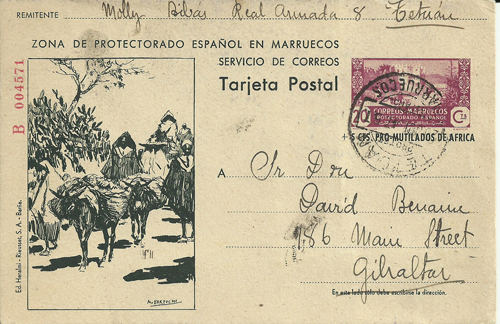 REMITENTE Molly Bibas Real Armada 8. Tetuán
ZONA DE PROTECTORADO ESPAÑOL EN MARRUECOS
SERVICIO DE CORREOS
Tarjeta Postal
B 004571
20 Cts
CORREOS-MARRUECOS
PROTECTORADO ESPAÑOL
MARRUECOS
+ 5 CTS. PRO-MUTILADOS DE AFRICA
A Sr Don
David Benaim
286 Main Street
Gibraltar
En este lado sólo debe escribirse la dirección.
A. BERTUCHI
Ed. Heraini - Rieusset, S. A. - Barna.